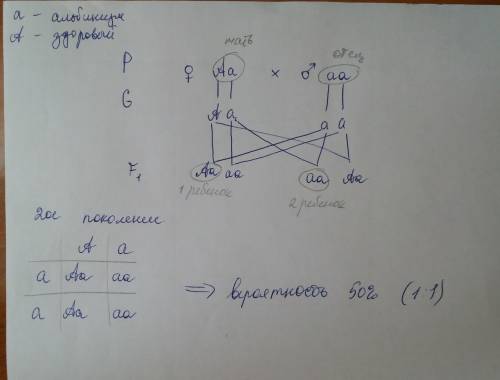 a - альбинизм
A - здоровый
мать отец
P ♀ Aa × ♂ aa
G
A a a a
F₁ Aa aa aa Aa
1 ребенок 2 ребенок
2ое поколение
A a
a Aa aa
a Aa aa
⇒ вероятность 50% (1:1)